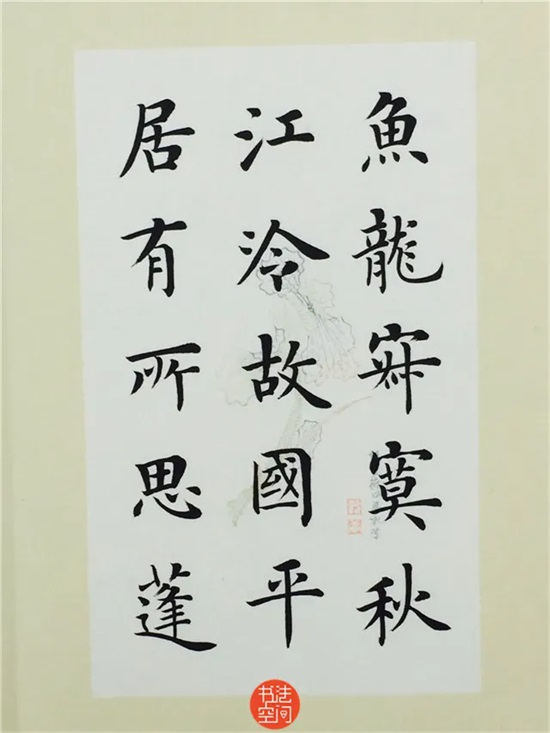 魚龍寂寞秋
江泠故國平
居有所思蓬
书法
空间